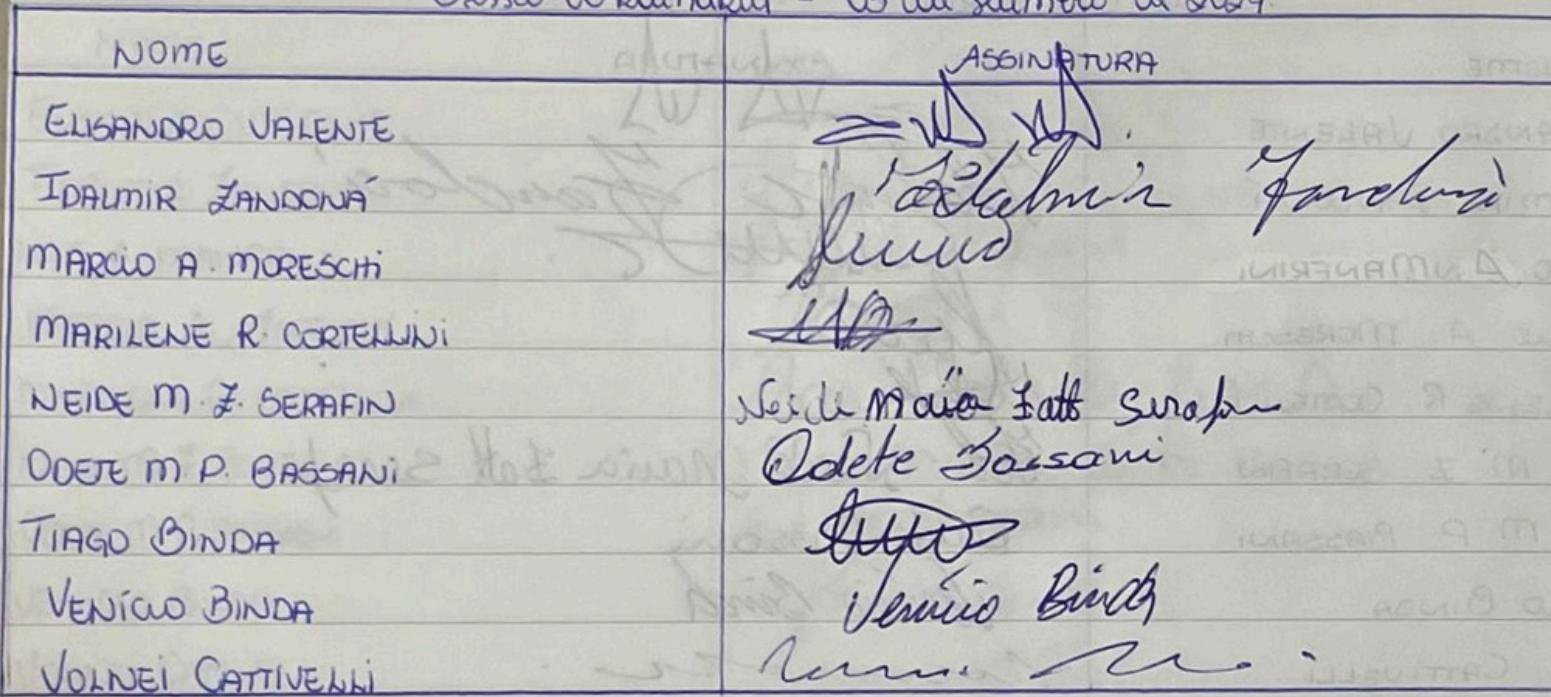 NOME ASSINATURA
ELISANDRO VALENTE
IDALMIR ZANDONÁ Idalmir Zandoná
MARCIO A. MORESCHI
MARILENE R. CORTELLINI
NEIDE M. Z. SERAFIN Neide Maria Zatt Serafin
ODETE M. P. BASSANI Odete Bassani
TIAGO BINDA
VENÍCIO BINDA Venício Binda
VOLNEI CATTIVELLI